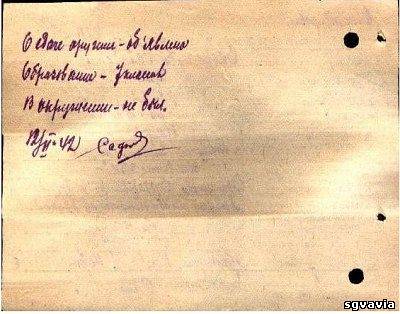 О сдаче оружия - объявлено
Образование - 7 классов
В окружении - не был.
12/VI-42
sgvavia